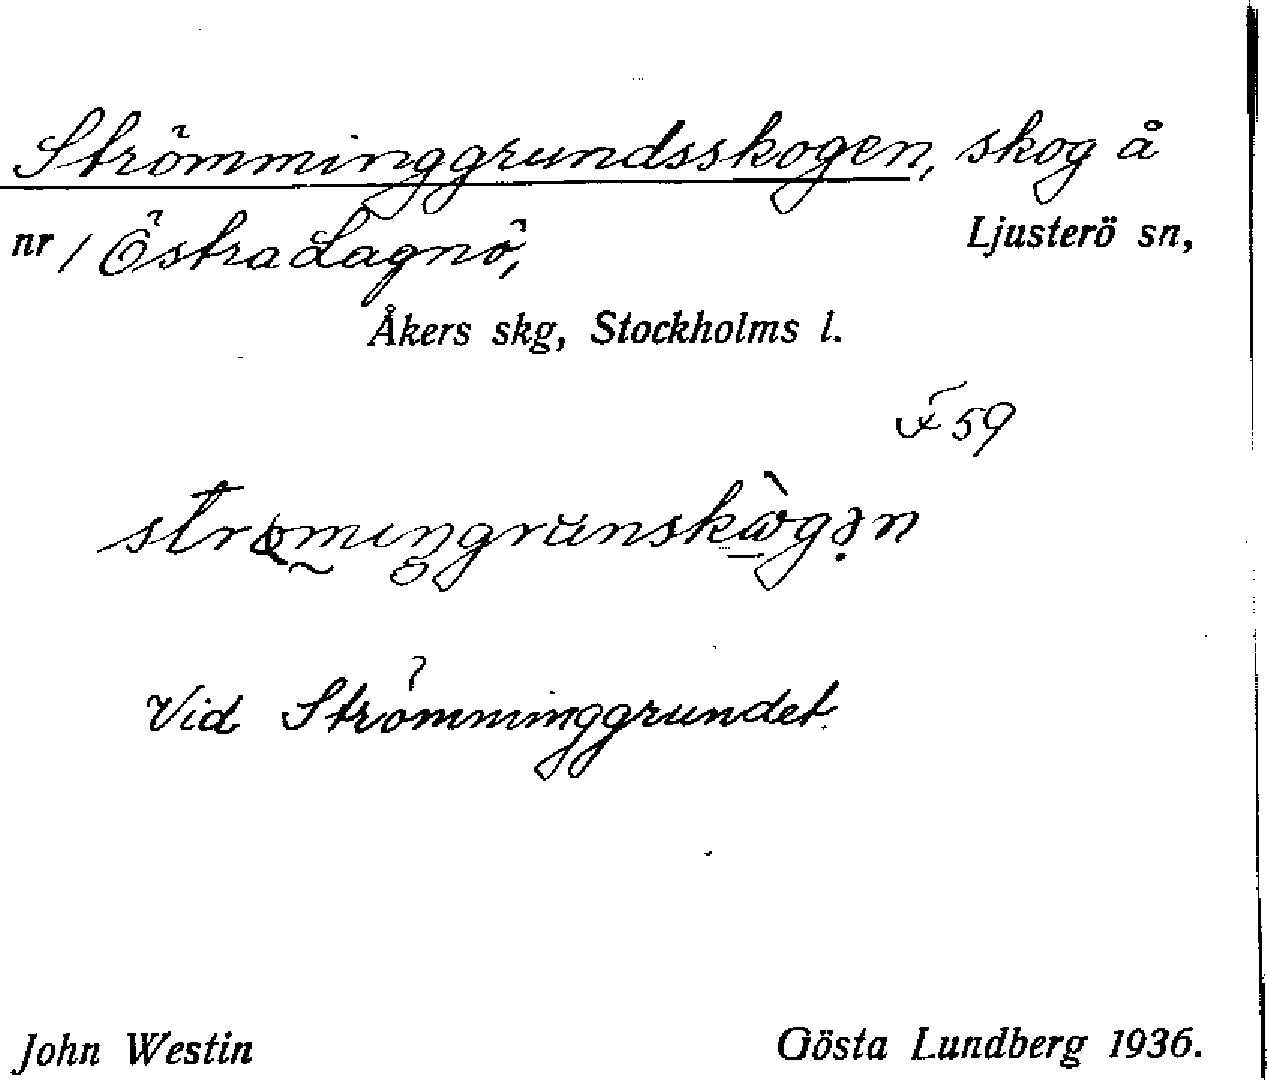 Strömminggrundsskogen, skog å
nr 1 Östra Lagnö, Ljusterö sn,
Åkers skg, Stockholms l.
F 59
Vid Strömminggrundet
John Westin Gösta Lundberg 1936.